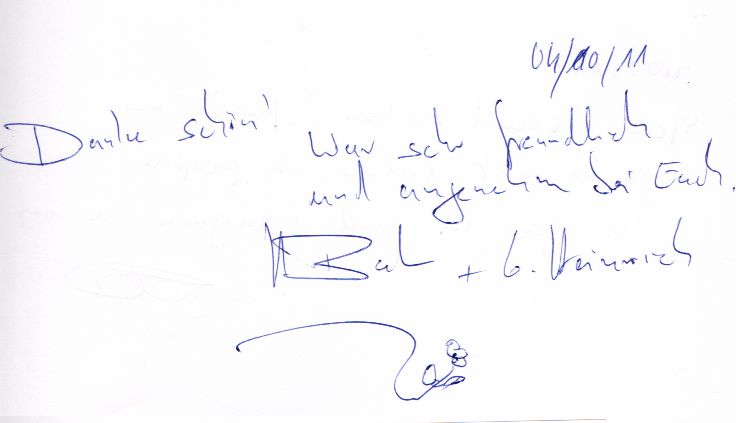 04/10/11
Danke schön!
War sehr freundlich
und angenehm bei Euch.
+ G. Heinrich